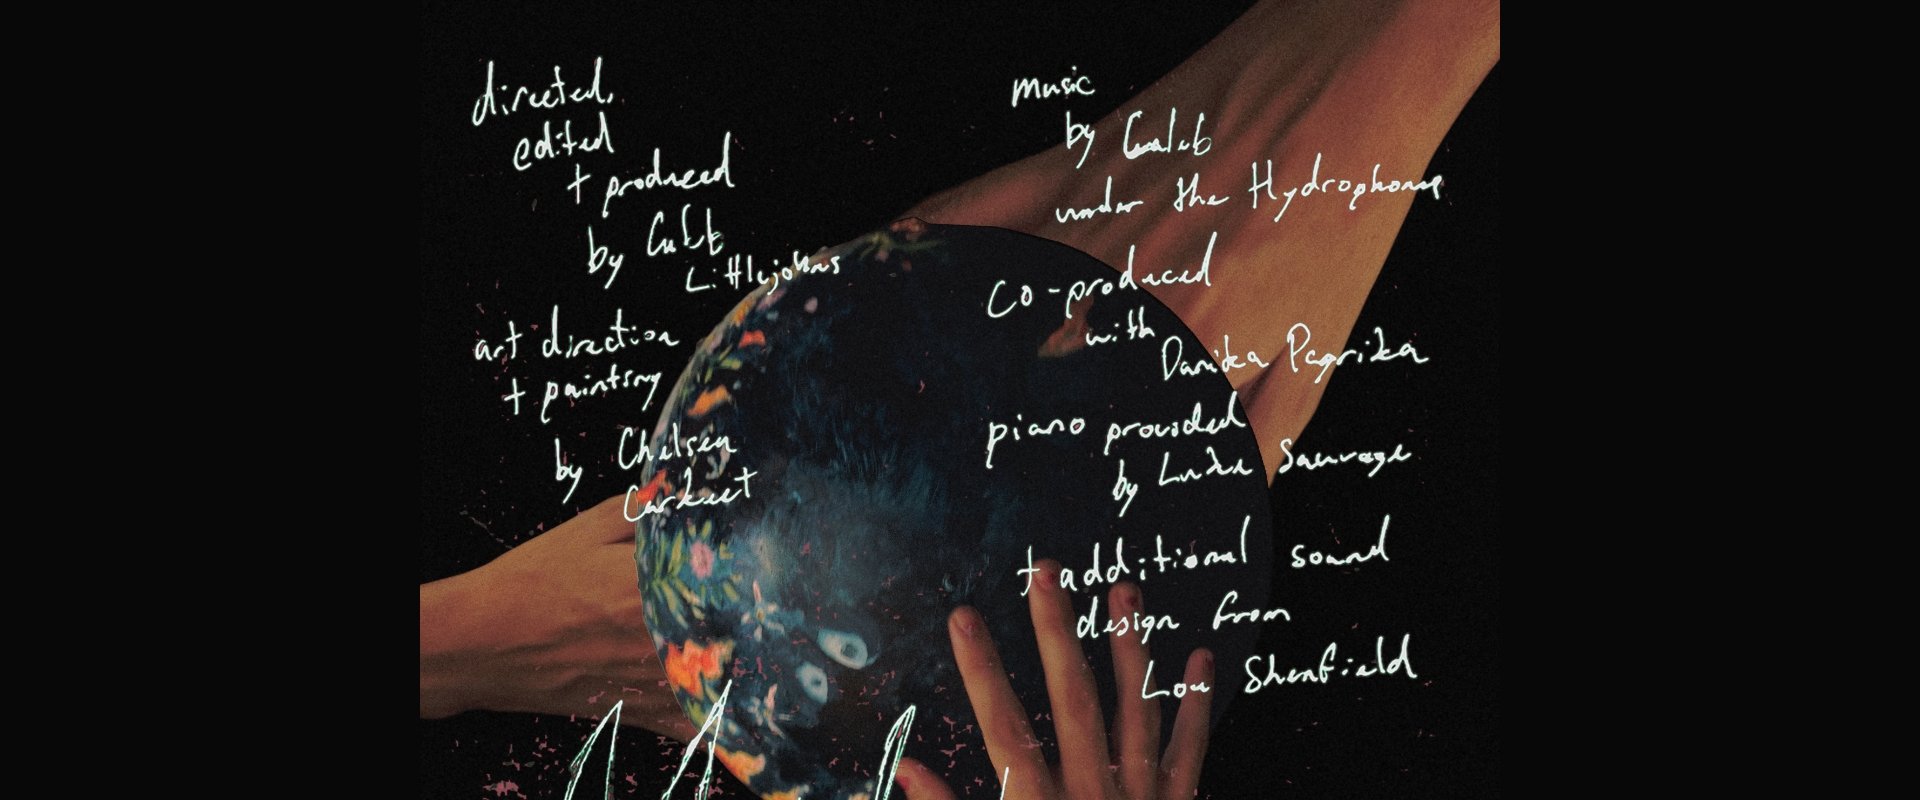 directed,
edited
+ produced
by Caleb
Littlejohns
art direction
+ painting
by Chelsea
Carkeet
music
by Caleb
under the Hydrophone
co-produced
with
Danika Paprika
piano provided
by Luke Sauvage
+ additional sound
design from
Lou Shenfield